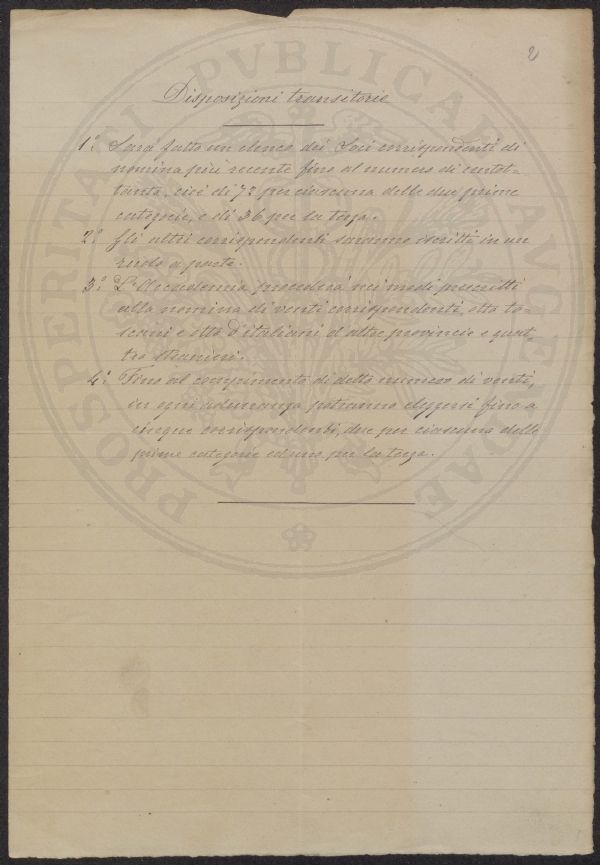 2
Disposizioni transitorie
1.° Sarà fatto un elenco dei Soci corrispondenti di
nomina più recente fino al numero di centot-
tanta, cioè di 72 per ciascuna delle due prime
categorie, e di 36 per la terza.
2.° Gli altri corrispondenti saranno iscritti in un
ruolo a parte.
3.° L'Accademia procederà nei modi prescritti
alla nomina di venti corrispondenti, otto to-
scani e otto d'italiani d'altre provincie e quat-
tro stranieri.
4.° Fino al compimento di detto numero di venti,
in ogni adunanza potranno eleggersi fino a
cinque corrispondenti, due per ciascuna delle
prime categorie ed uno per la terza.
PROSPERITATI PVBLICAE AVGENDAE